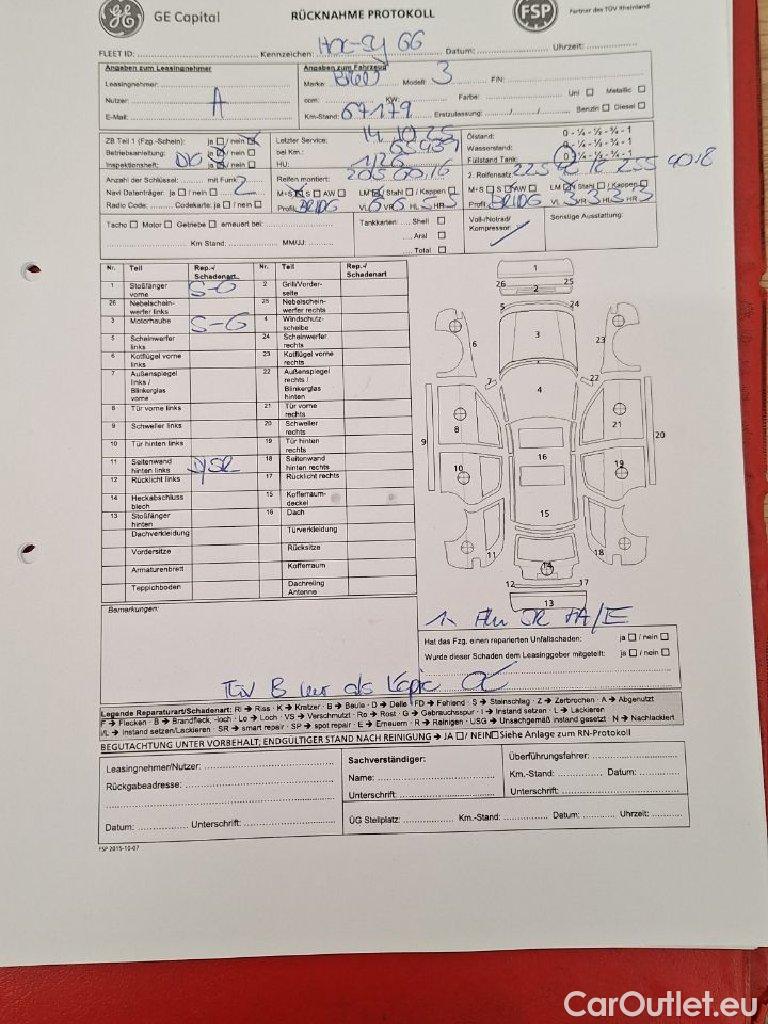 GE Capital RÜCKNAHME PROTOKOLL FSP Partner des TÜV Rheinland
FLEET ID: Kennzeichen: Datum: Uhrzeit:
Angaben zum Leasingnehmer Angaben zum Fahrzeug
Leasingnehmer: Marke Modell: 3 FIN:
Nutzer: A ccm: KW: Farbe: Uni Metallic
E-Mail: Km-Stand: 67179 Erstzulassung: Benzin Diesel
ZB Teil 1 (Fzg.-Schein): ja / nein Letzter Service: 14.10.25 Ölstand: 0 - ¼ - ½ - ¾ - 1
Betriebsanleitung: ja / nein bei Km.: Wasserstand: 0 - ¼ - ½ - ¾ - 1
Inspektionsheft: ja / nein HU: 1/26 Füllstand Tank: 0 - ¼ - ½ - ¾ - 1
Anzahl der Schlüssel: mit Funk: 2 Reifen montiert: 205 60 16 2. Reifensatz:
Navi Datenträger: ja / nein M+S S AW LM / Stahl / Kappen M+S S AW LM / Stahl / Kappen
Radio Code: Codekarte: ja / nein Profil: BRIDG VL 6 VR 6 HL 5 HR 5 Profil: BRIDG VL 3 VR 3 HL 3 HR 3
Tacho Motor Getriebe erneuert bei: Tankkarten: Shell Voll-/Notrad/ Sonstige Ausstattung:
Aral Kompressor:
Km Stand: MM/JJ: Total
Nr. Teil Rep.-/ Schadenart Nr. Teil Rep.-/ Schadenart
1 Stoßfänger vorne S-G 2 Grill/Vorderseite
26 Nebelscheinwerfer links 25 Nebelscheinwerfer rechts
3 Motorhaube S-G 4 Windschutzscheibe
5 Scheinwerfer links 24 Scheinwerfer rechts
6 Kotflügel vorne links 23 Kotflügel vorne rechts
7 Außenspiegel links / Blinkerglas vorne 22 Außenspiegel rechts / Blinkerglas hinten
8 Tür vorne links 21 Tür vorne rechts
9 Schweller links 20 Schweller rechts
10 Tür hinten links 19 Tür hinten rechts
11 Seitenwand hinten links D/SR 18 Seitenwand hinten rechts
12 Rücklicht links 17 Rücklicht rechts
14 Heckabschluss blech 15 Kofferraumdeckel
13 Stoßfänger hinten 16 Dach
Dachverkleidung Türverkleidung
Vordersitze Rücksitze
Armaturenbrett Kofferraum
Teppichboden Dachreling Antenne
1
26 25
2
5 24
3
6 23
7 22
4
8 21
9 20
16
10 19
15
11 18
14
12 17
13
Bemerkungen:
Hat das Fzg. einen reparierten Unfallschaden: ja / nein
Wurde dieser Schaden dem Leasinggeber mitgeteilt: ja / nein
TÜV B nur als Kopie
Legende Reparaturart/Schadenart: RI → Riss · K → Kratzer · B → Beule · D → Delle · FD → Fehlend · S → Steinschlag · Z → Zerbrochen · A → Abgenutzt
F → Flecken · B → Brandfleck, -loch · Lo → Loch · VS → Verschmutzt · Ro → Rost · G → Gebrauchsspur · I → Instand setzen · L → Lackieren
I/L → Instand setzen/Lackieren SR → smart repair · SP → spot repair · E → Erneuern · R → Reinigen · USG → Unsachgemäß instand gesetzt N → Nachlackiert
BEGUTACHTUNG UNTER VORBEHALT; ENDGÜLTIGER STAND NACH REINIGUNG → JA / NEIN Siehe Anlage zum RN-Protokoll
Leasingnehmer/Nutzer: Sachverständiger: Überführungsfahrer:
Rückgabeadresse: Name: Km.-Stand: Datum:
Unterschrift: Unterschrift:
Datum: Unterschrift: ÜG Stellplatz: Km.-Stand: Datum: Uhrzeit:
FSP 2015-10-07
CarOutlet.eu